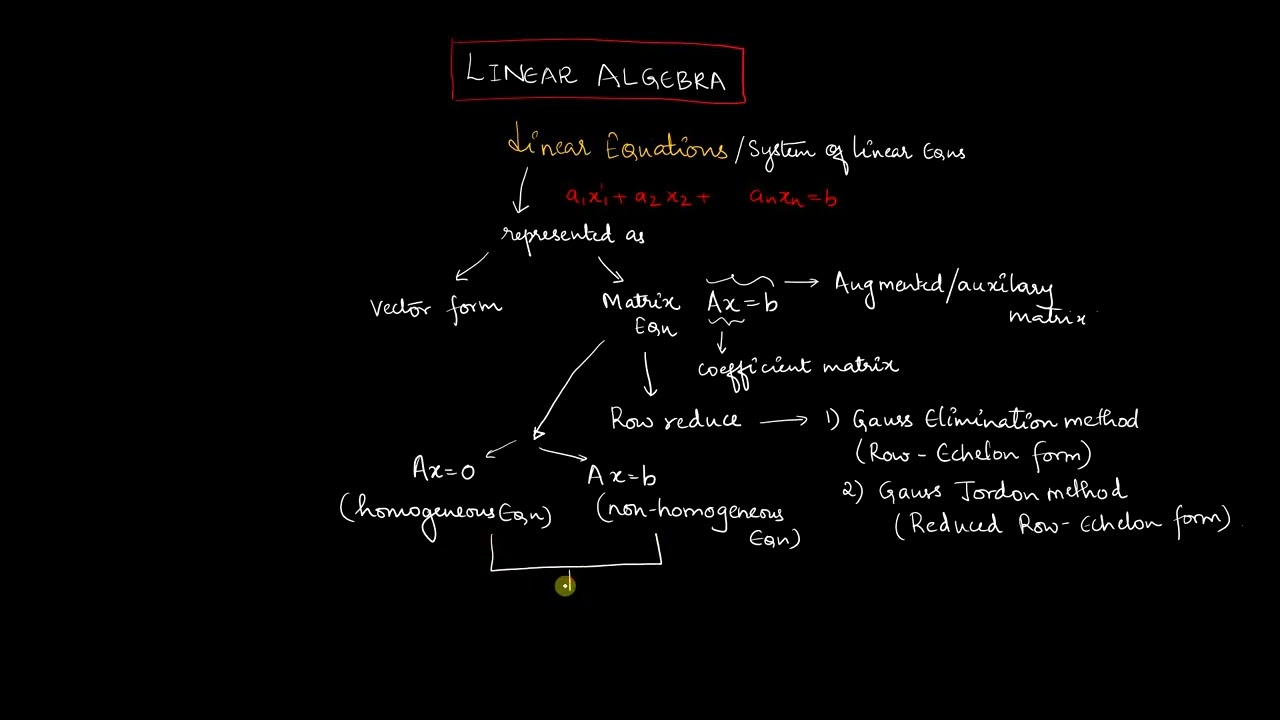 LINEAR ALGEBRA
Linear Equations / System of linear Eqns
a₁x₁ + a₂x₂ + anxn = b
represented as
Vector form
Matrix Eqn
Ax = b
Augmented/auxilary
matrix
coefficient matrix
Row reduce
1) Gauss Elimination method
(Row-Echelon form)
2) Gauss Jordon method
(Reduced Row-Echelon form)
Ax=0
(homogeneous Eqn)
Ax=b
(non-homogeneous
Eqn)